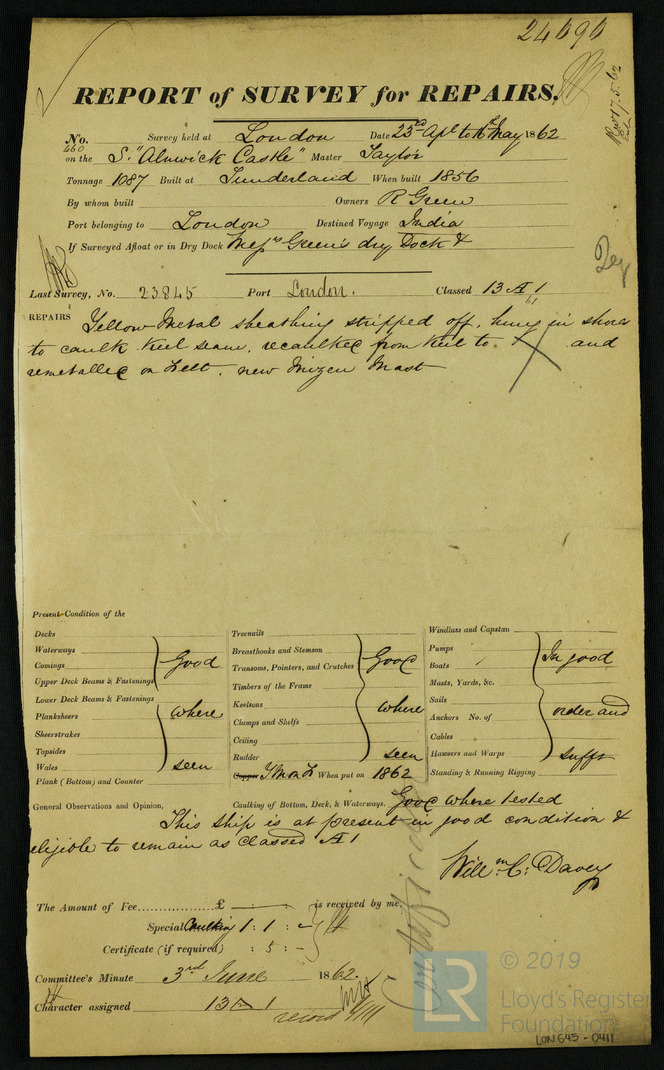 24090
REPORT of SURVEY for REPAIRS.
No. 260 Survey held at London Date 23rd Apl to 16th May 1862
on the S. "Alnwick Castle" Master Taylor
Tonnage 1087 Built at Sunderland When built 1856
By whom built Owners R Green
Port belonging to London Destined Voyage India
If Surveyed Afloat or in Dry Dock Messrs Green's dry Dock &
Last Survey, No. 23845 Port London. Classed 13 A 1
61
REPAIRS Yellow Metal sheathing stripped off, hung in shores
to caulk Keel seam, recaulked from Keel to and
remetalled on Felt. new Mizen Mast
Present Condition of the
Decks
Waterways
Comings
Upper Deck Beams & Fastenings
Good
Lower Deck Beams & Fastenings
Planksheers
Sheerstrakes
Topsides
Wales
where seen
Plank (Bottom) and Counter
Treenails
Breasthooks and Stemson
Transoms, Pointers, and Crutches
Timbers of the Frame
Keelsons
Clamps and Shelfs
Ceiling
Rudder
Good where seen
Copper YM on F When put on 1862
Windlass and Capstan
Pumps
Boats
Masts, Yards, &c.
Sails
Anchors No. of
Cables
Hawsers and Warps
In good order and sufft
Standing & Running Rigging
General Observations and Opinion, Caulking of Bottom, Deck, & Waterways. Good where tested
This ship is at present in good condition &
eligible to remain as classed A 1
Willm. C: Davey
The Amount of Fee £ is received by me,
Special Caulking 1 : 1 : -
Certificate (if required) : 5 : -
Committee's Minute 3rd June 1862.
Character assigned 13 A 1
© 2019
LR
Lloyd's Register
Foundation
LON645-0411